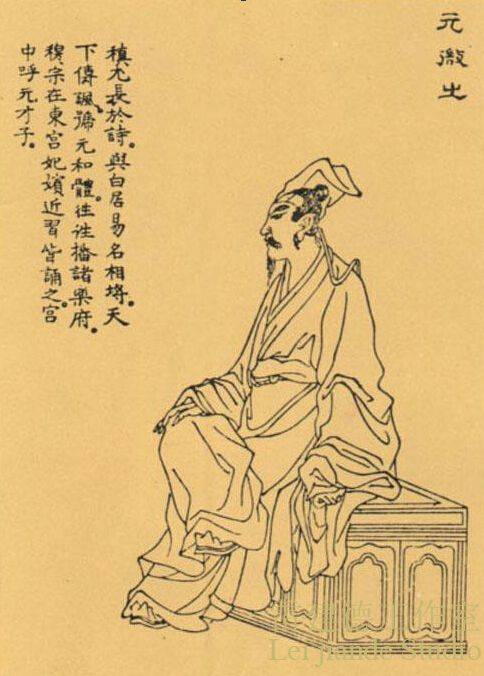 元微之
稹尤長於詩。與白居易名相埒。天
下傳諷、號元和體。往往播諸樂府。
穆宗在東宮妃嬪近習皆誦之。宮
中呼元才子。
德工作室
Leijiande Studio